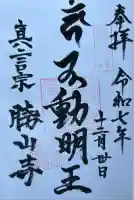 奉拝
令和七年
十二月廿日
不動明王
真言宗
勝山寺